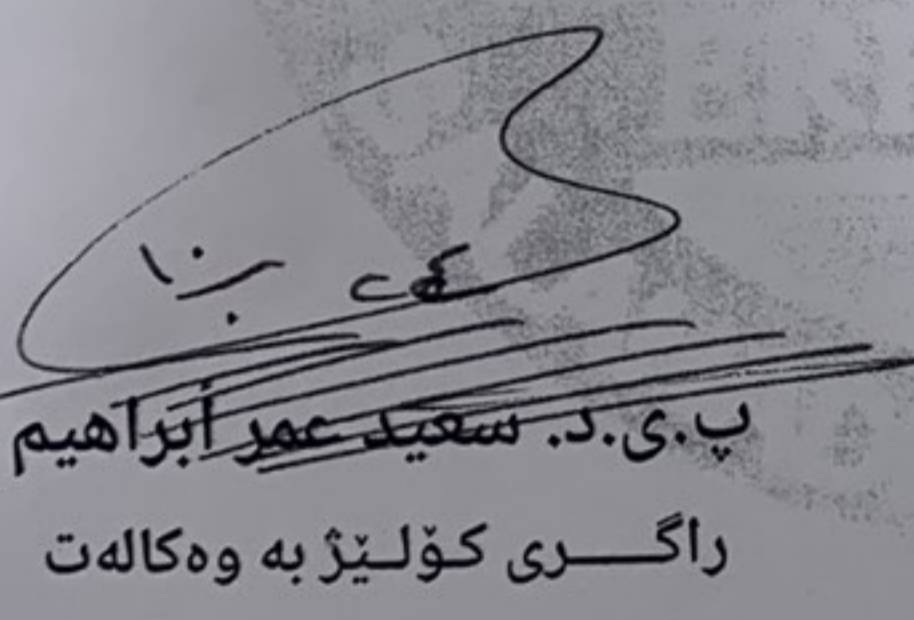 پ.ی.د. سعید عمر أبراهیم
راگری کۆلێژ بە وەکالەت